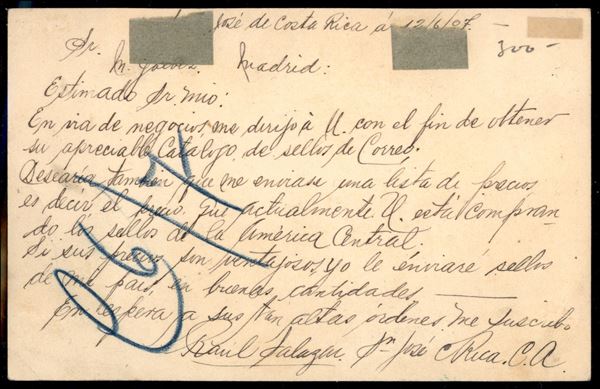 José de Costa Rica á 12/6/07.
300-
Sr.
M. Galvez. Madrid:
Estimado Sr. mio:
En via de negocios, me dirijo à U. con el fin de obtener
su apreciable Catalogo de sellos de Correo.
Desearia tambien que me enviase una lista de precios
es decir el precio, que actualmente U. está compran-
do los sellos de la America Central.
Si sus precios son ventajosos, yo le enviaré sellos
de mi pais, en buenas cantidades
En espera a sus tan altas ordenes me suscribo
Raúl Salazar. Sn José C. Rica. C. A.